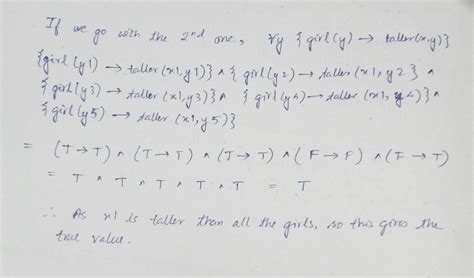 If we go with the 2nd one, ∀y {girl(y) → taller(x,y)}
{girl(y1) → taller(x1,y1)} ∧ {girl(y2) → taller(x1,y2} ∧
{girl(y3) → taller(x1,y3)} ∧ {girl(y4) → taller(x1,y4)} ∧
{girl(y5) → taller(x1,y5)}
= (T→T) ∧ (T→T) ∧ (T→T) ∧ (F→F) ∧ (F→T)
= T ∧ T ∧ T ∧ T ∧ T = T
∴ As x1 is taller than all the girls, so this gives the
true value.